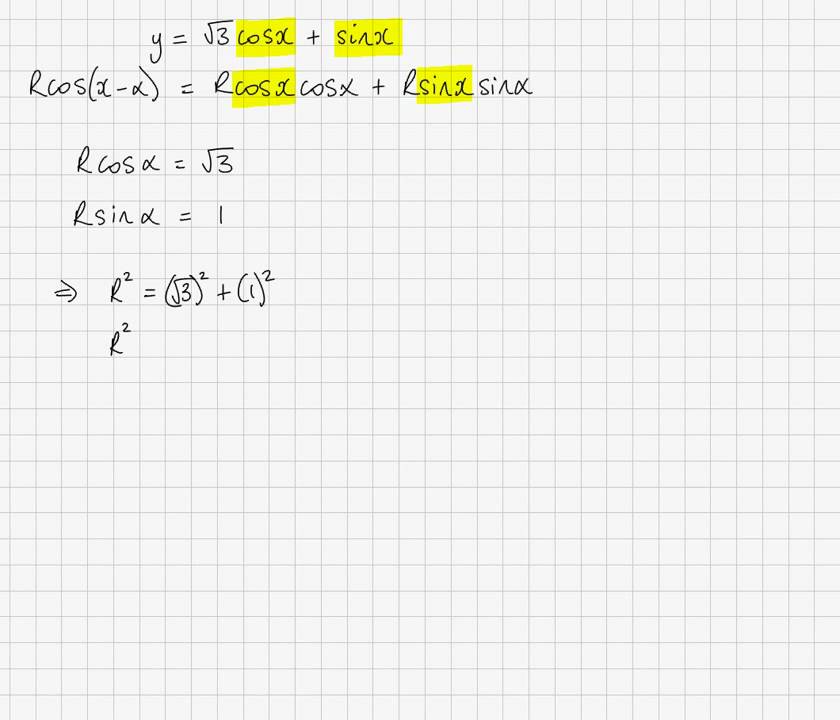 y = √3 cosx + sinx
Rcos(x-α) = Rcosxcosα + Rsinxsinα
Rcosα = √3
Rsinα = 1
⇒ R² = (√3)² + (1)²
R²